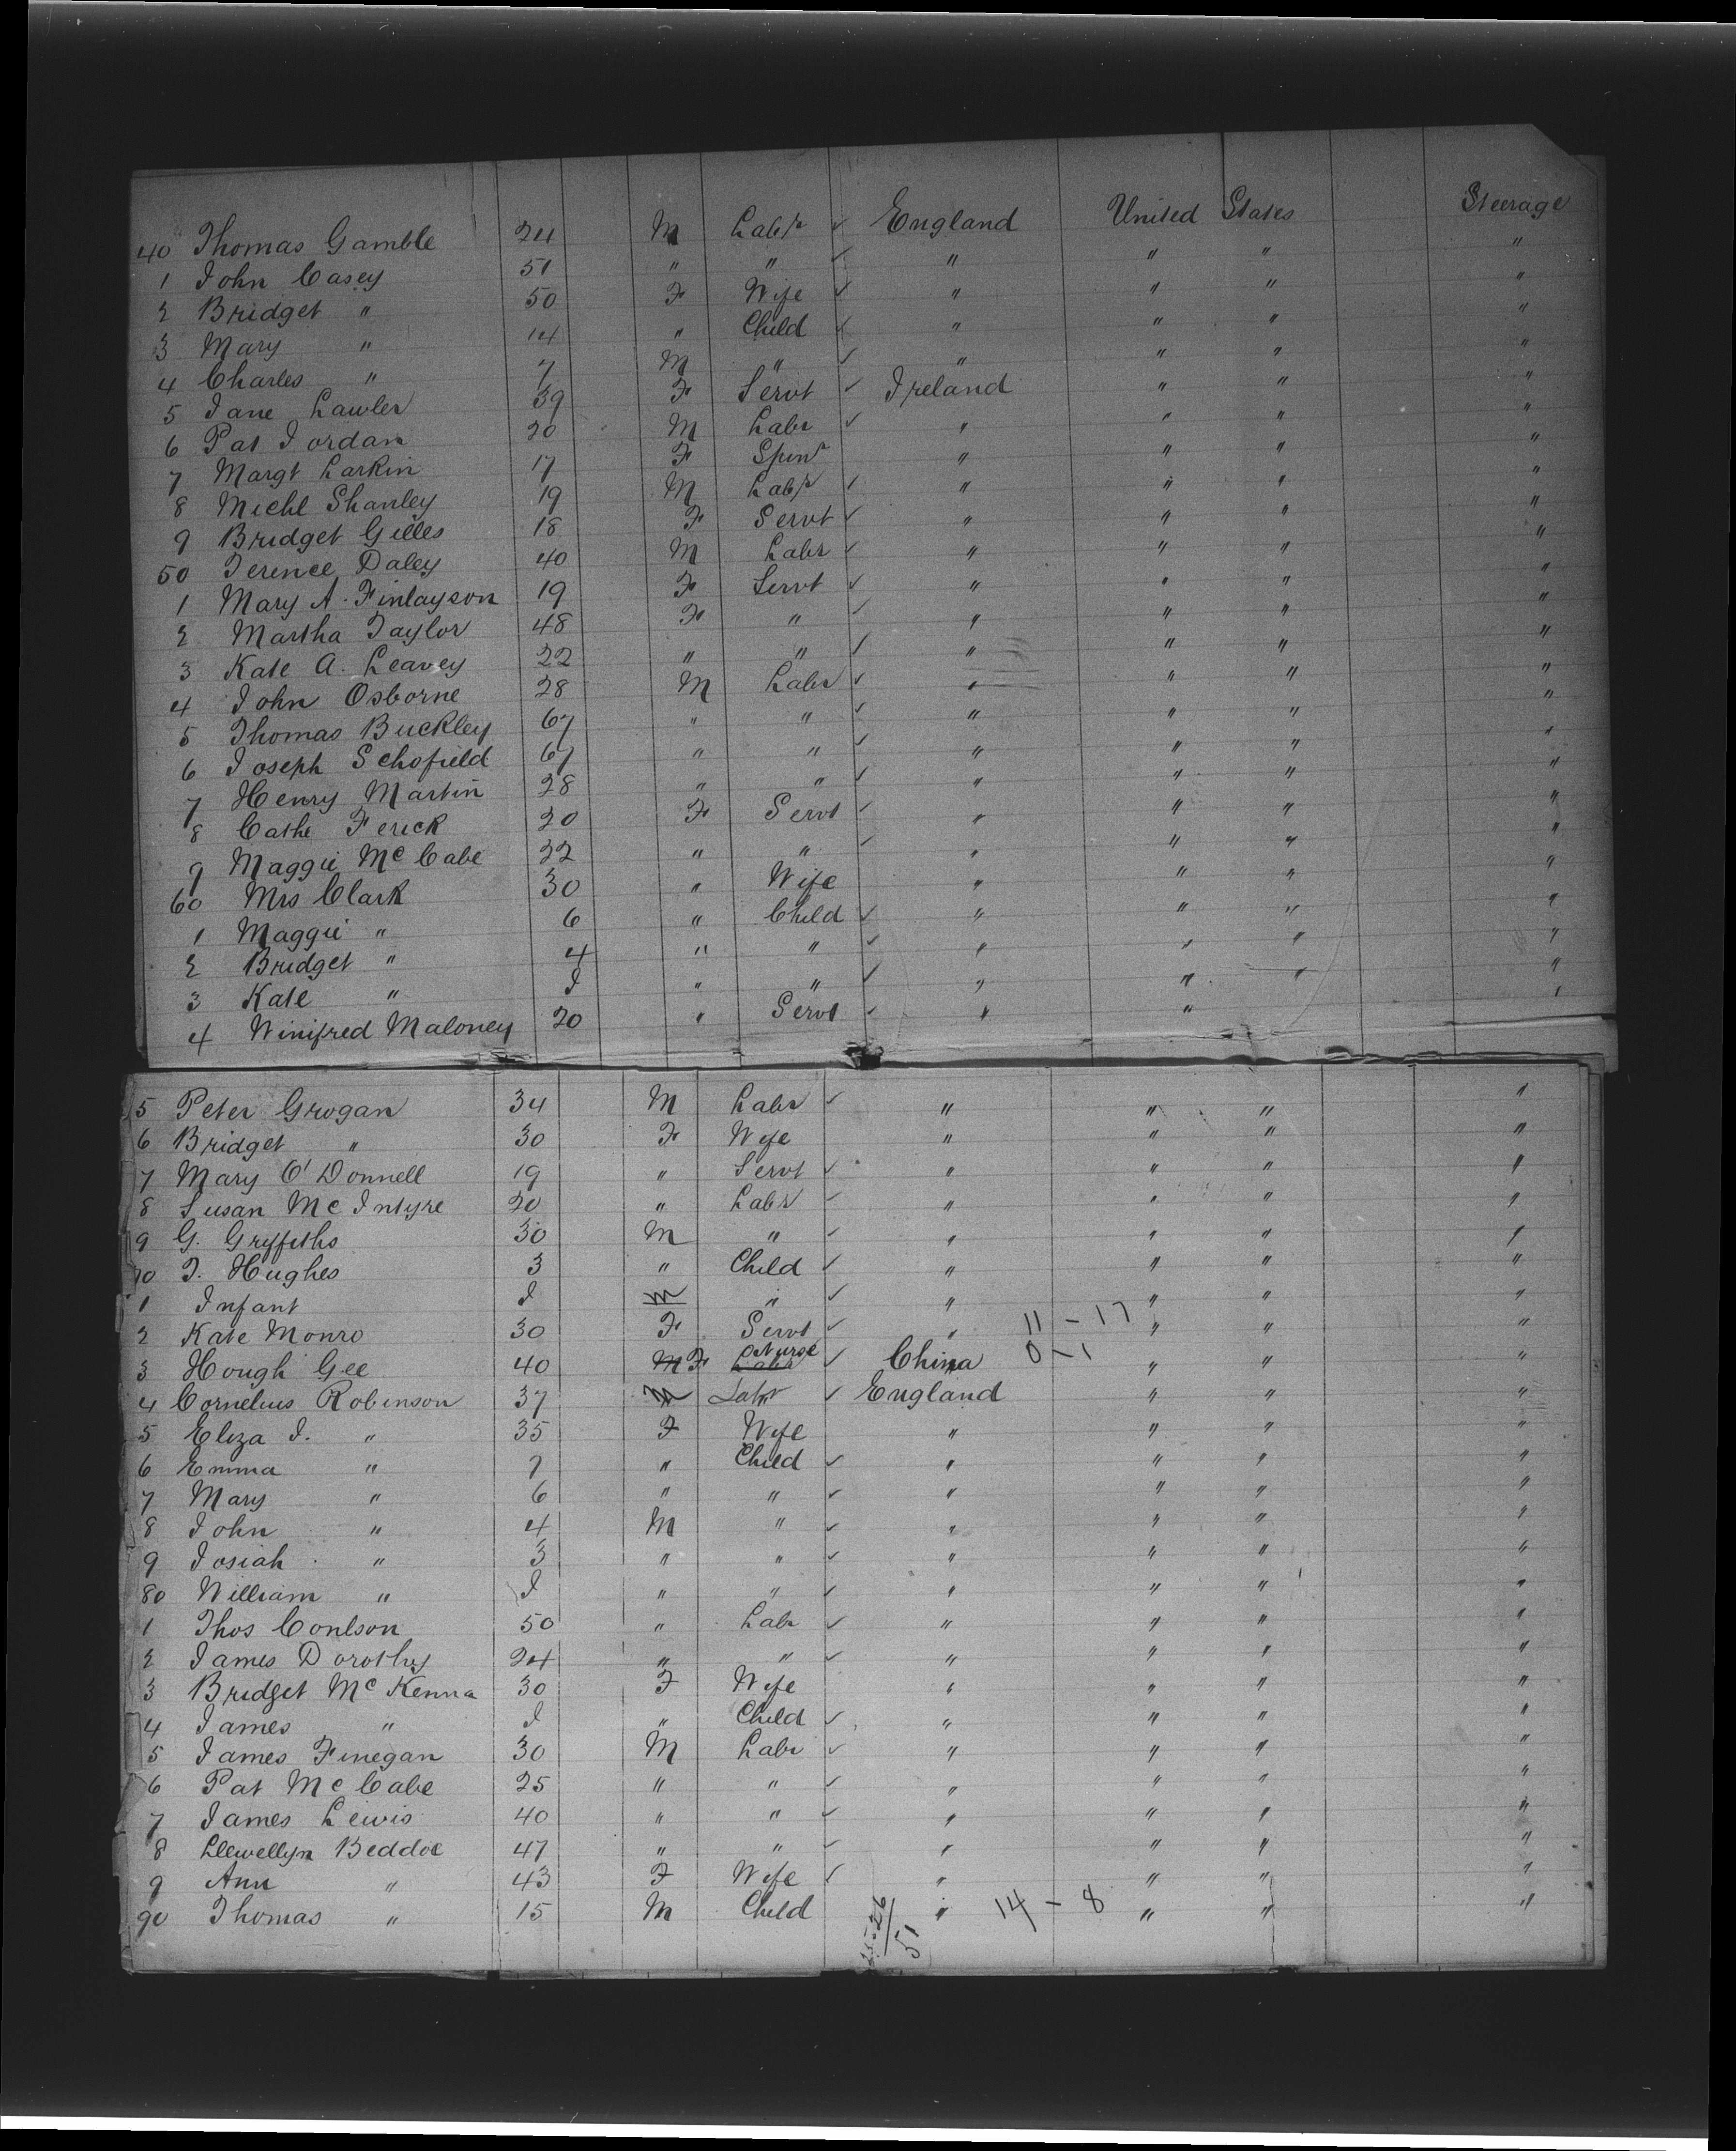 40 Thomas Gamble 24 M Labr ✓ England United States Steerage
1 John Casey 51 " " ✓ " " " "
2 Bridget " 50 F Wife ✓ " " " "
3 Mary " 14 " Child ✓ " " " "
4 Charles " 7 M " ✓ " " " "
5 Jane Lawler 39 F Servt ✓ Ireland " " "
6 Pat Jordan 20 M Labr ✓ " " " "
7 Margt Larkin 17 F Spinr " " " "
8 Michl Shanley 19 M Labr ✓ " " " "
9 Bridget Gilles 18 F Servt ✓ " " " "
50 Terence Daley 40 M Labr ✓ " " " "
1 Mary A. Finlayson 19 F Servt ✓ " " " "
2 Martha Taylor 48 F " ✓ " " " "
3 Kate A. Leavey 22 " " ✓ " " " "
4 John Osborne 28 M Labr ✓ " " " "
5 Thomas Buckley 67 " " ✓ " " " "
6 Joseph Schofield 67 " " ✓ " " " "
7 Henry Martin 28 " " ✓ " " " "
8 Cathe Ferick 20 F Servt ✓ " " " "
9 Maggie McCabe 22 " " ✓ " " " "
60 Mrs Clark 30 " Wife " " " "
1 Maggie " 6 " Child ✓ " " " "
2 Bridget " 4 " " ✓ " " " "
3 Kate " I " " ✓ " " " "
4 Winifred Maloney 20 " Servt ✓ " " "
5 Peter Grogan 34 M Labr ✓ " " " "
6 Bridget " 30 F Wife " " " "
7 Mary O'Donnell 19 " Servt ✓ " " " "
8 Susan McIntyre 20 " Labr ✓ " " " "
9 G. Gryffiths 30 M " ✓ " " " "
70 T. Hughes 3 " Child ✓ " " " "
1 Infant I M " ✓ " " " "
2 Kate Monro 30 F Servt ✓ " 11 - 17 " " "
3 Hough Gee 40 M F Labr Nurse ✓ China 0 - 1 " " "
4 Cornelius Robinson 37 M Labr ✓ England " " "
5 Eliza J. " 35 F Wife " " " "
6 Emma " 7 " Child ✓ " " " "
7 Mary " 6 " " ✓ " " " "
8 John " 4 M " ✓ " " " "
9 Josiah " 3 " " ✓ " " " "
80 William " I " " ✓ " " " "
1 Thos Conlson 50 " Labr ✓ " " " "
2 James Dorothy 24 " " ✓ " " " "
3 Bridget McKenna 30 F Wife " " " "
4 James " I " Child ✓ " " " "
5 James Finegan 30 M Labr ✓ " " " "
6 Pat McCabe 25 " " ✓ " " " "
7 James Lewis 40 " " ✓ " " " "
8 Llewellyn Beddoe 47 " " ✓ " " " "
9 Ann " 43 F Wife ✓ " " " "
90 Thomas " 15 M Child " 14 - 8 " " "
25-26
51